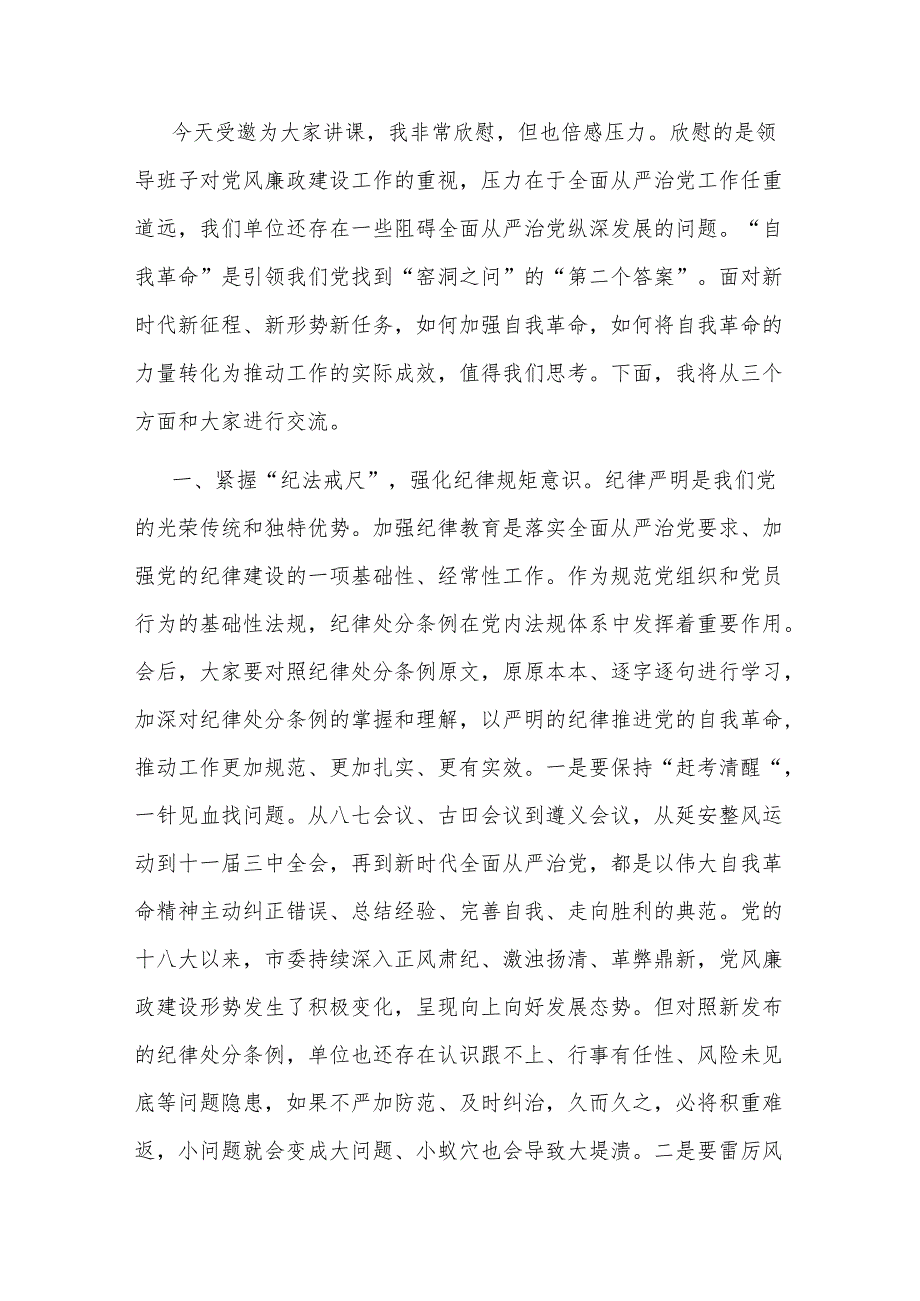 今天受邀为大家讲课，我非常欣慰，但也倍感压力。欣慰的是领
导班子对党风廉政建设工作的重视，压力在于全面从严治党工作任重
道远，我们单位还存在一些阻碍全面从严治党纵深发展的问题。“自
我革命”是引领我们党找到“窑洞之问”的“第二个答案”。面对新
时代新征程、新形势新任务，如何加强自我革命，如何将自我革命的
力量转化为推动工作的实际成效，值得我们思考。下面，我将从三个
方面和大家进行交流。
一、紧握“纪法戒尺”，强化纪律规矩意识。纪律严明是我们党
的光荣传统和独特优势。加强纪律教育是落实全面从严治党要求、加
强党的纪律建设的一项基础性、经常性工作。作为规范党组织和党员
行为的基础性法规，纪律处分条例在党内法规体系中发挥着重要作用。
会后，大家要对照纪律处分条例原文，原原本本、逐字逐句进行学习，
加深对纪律处分条例的掌握和理解，以严明的纪律推进党的自我革命，
推动工作更加规范、更加扎实、更有实效。一是要保持“赶考清醒“，
一针见血找问题。从八七会议、古田会议到遵义会议，从延安整风运
动到十一届三中全会，再到新时代全面从严治党，都是以伟大自我革
命精神主动纠正错误、总结经验、完善自我、走向胜利的典范。党的
十八大以来，市委持续深入正风肃纪、激浊扬清、革弊鼎新，党风廉
政建设形势发生了积极变化，呈现向上向好发展态势。但对照新发布
的纪律处分条例，单位也还存在认识跟不上、行事有任性、风险未见
底等问题隐患，如果不严加防范、及时纠治，久而久之，必将积重难
返，小问题就会变成大问题、小蚁穴也会导致大堤溃。二是要雷厉风